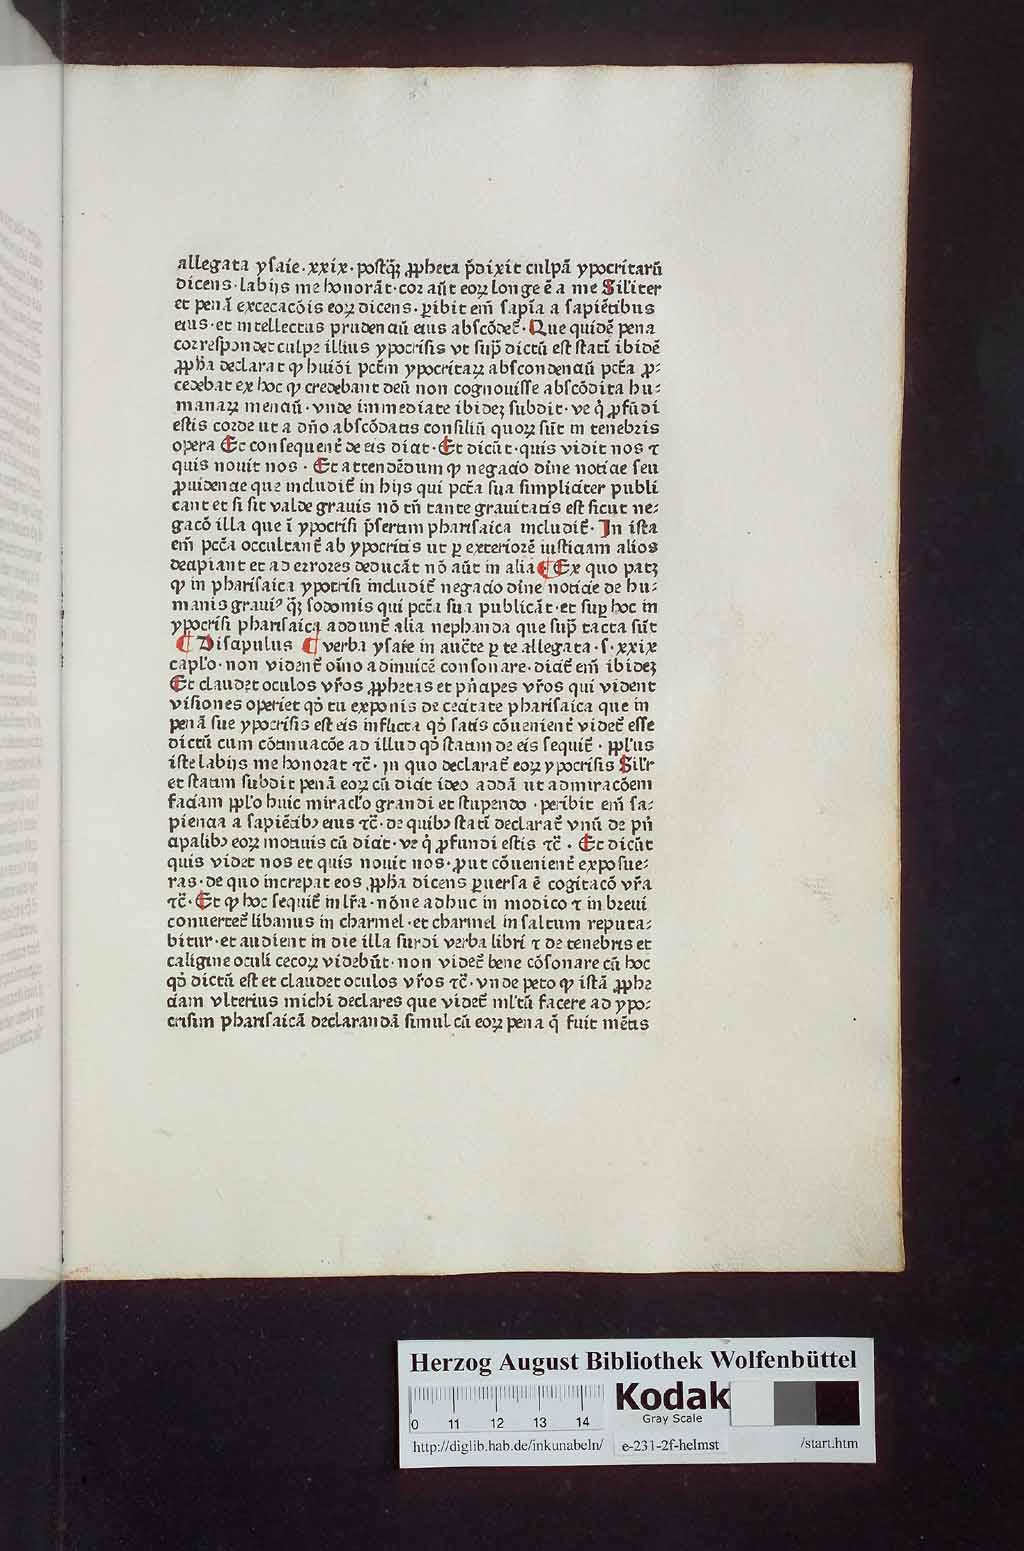 allegata ysaie · xxix · postꝙ̄ ꝓpheta p̄dixit culpā ypocritarū
dicens · labijs me honorāt · cor aūt eoꝝ longe ē a me Siliter
et penā excecacōis eoꝝ dicens · ꝑibit em̄ sapīa a sapiētibus
eius · et intellectus prudenciū eius abscōdet̄ · Que quidē pena
correspondet culpe illius ypocrisis vt sup̄ dictū est statī ibidē
ꝓph̄a declarat ꝙ huiōi pctm̄ ypocritaꝝ abscondenciū pctā̄ ꝓ-
cedebat ex hoc ꝙ credebant deū non cognouisse abscōdita hu-
manaꝝ menciū · vnde immediate ibidez subdit · ve q̄ ꝓfūdi
estis corde ut a dn̄o abscōdatis consiliū quoꝝ sūt in tenebris
opera Et consequent̄ de eis dicit · Et dicūt · quis vidit nos ⁊
quis nouit nos · Et attendēdum ꝙ negacio diīne noticie seu
ꝓuidencie que includit̄ in hijs qui pctā̄ sua simpliciter publi
cant et si sit valde grauis nō tn̄ tante grauitatis est sicut ne-
gacō illa que ī ypocrisi p̄sertim pharisaica includit̄ · In ista
em̄ pctā̄ occultant̄ ab ypocritis ut ꝑ exteriorē iusticiam alios
decipiant et ad errores deducāt nō aūt in alia ¶ Ex quo patz
ꝙ in pharisaica ypocrisi includit̄ negacio diīne noticie de hu-
manis grauiꝰ q̄ꝫ sodomis qui pctā̄ sua publicāt · et sup̄ hoc in
ypocrisi pharisaica addunt̄ alia nephanda que sup̄ tacta sūt
¶ Discipulus ¶ verba ysaie in auc̄te ꝑ te allegata · s · xxix
capl̄o · non vident̄ oīno adinuicē consonare · dicit̄ em̄ ibidez
Et claudet oculos vr̄os ꝓphetas et pn̄cipes vr̄os qui vident
visiones operiet qd̄ tu exponis de cecitate pharisaica que in
penā sue ypocrisis est eis inflicta qd̄ satis cōuenient̄ videt̄ esse
dictū cum cōtinuacōe ad illud qd̄ statim de eis sequit̄ · ppl̄us
iste labijs me honorat ⁊c̄ · in quo declarat̄ eoꝝ ypocrisis Sil̄r
et statim subdit penā eoꝝ cū dicit ideo addā ut admiracōem
faciam ppl̄o huic miracl̄o grandi et stupendo · peribit em̄ sa-
piencia a sapiētibꝰ eius ⁊c̄ · de quibꝰ statī declarat̄ vnū de pn̄
cipalibꝰ eoꝝ motiuis cū dicit · ve q̄ ꝓfundi estis ⁊c̄ · Et dicūt
quis videt nos et quis nouit nos · ꝓut cōuenient̄ exposue-
ras · de quo increpat eos ꝓph̄a dicens ꝑuersa ē cogitacō vr̄a
⁊c̄ · Et ꝙ hoc sequit̄ in lr̄a · nōne adhuc in modico ⁊ in breui
conuertet̄ libanus in charmel · et charmel in saltum reputa-
bitur · et audient in die illa surdi verba libri ⁊ de tenebris et
caligine oculi cecoꝝ videbūt · non videt̄ bene cōsonare cū hoc
qd̄ dictū est et claudet oculos vr̄os ⁊c̄ · vnde peto ꝙ istā ꝓphe
ciam vlterius michi declares que videt̄ ml̄tū facere ad ypo-
crisim pharisaicā declarandā simul cū eoꝝ pena q̄ fuit mētis
Herzog August Bibliothek Wolfenbüttel
Kodak
Gray Scale
0 11 12 13 14
http://diglib.hab.de/inkunabeln/ e-231-2f-helmst /start.htm